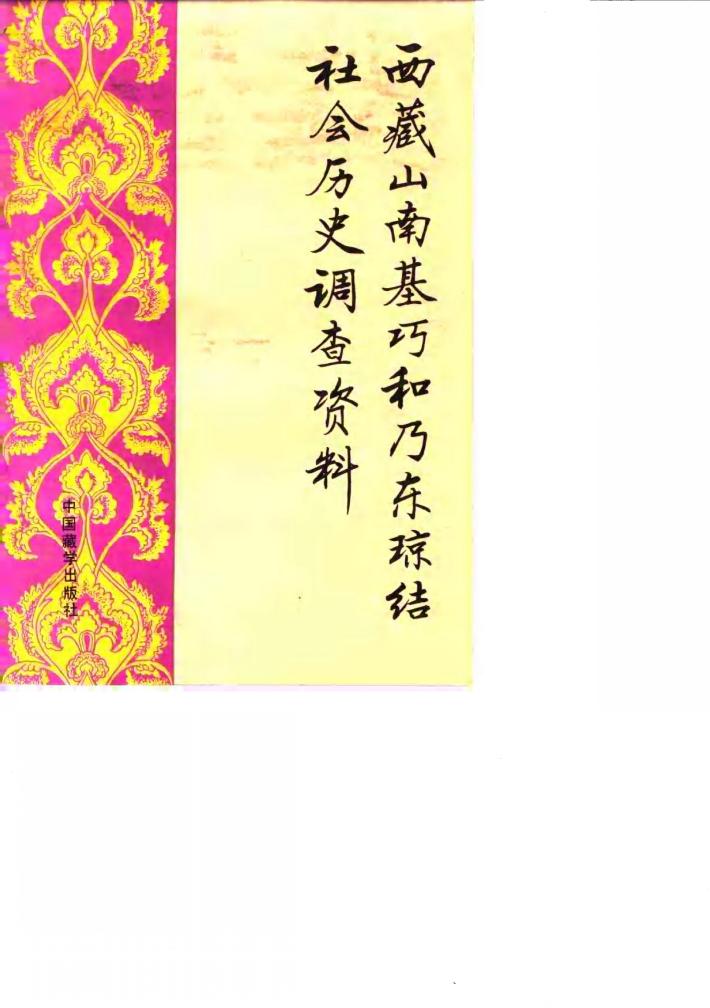 西藏山南基巧和乃东琼结
社会历史调查资料
中国藏学出版社